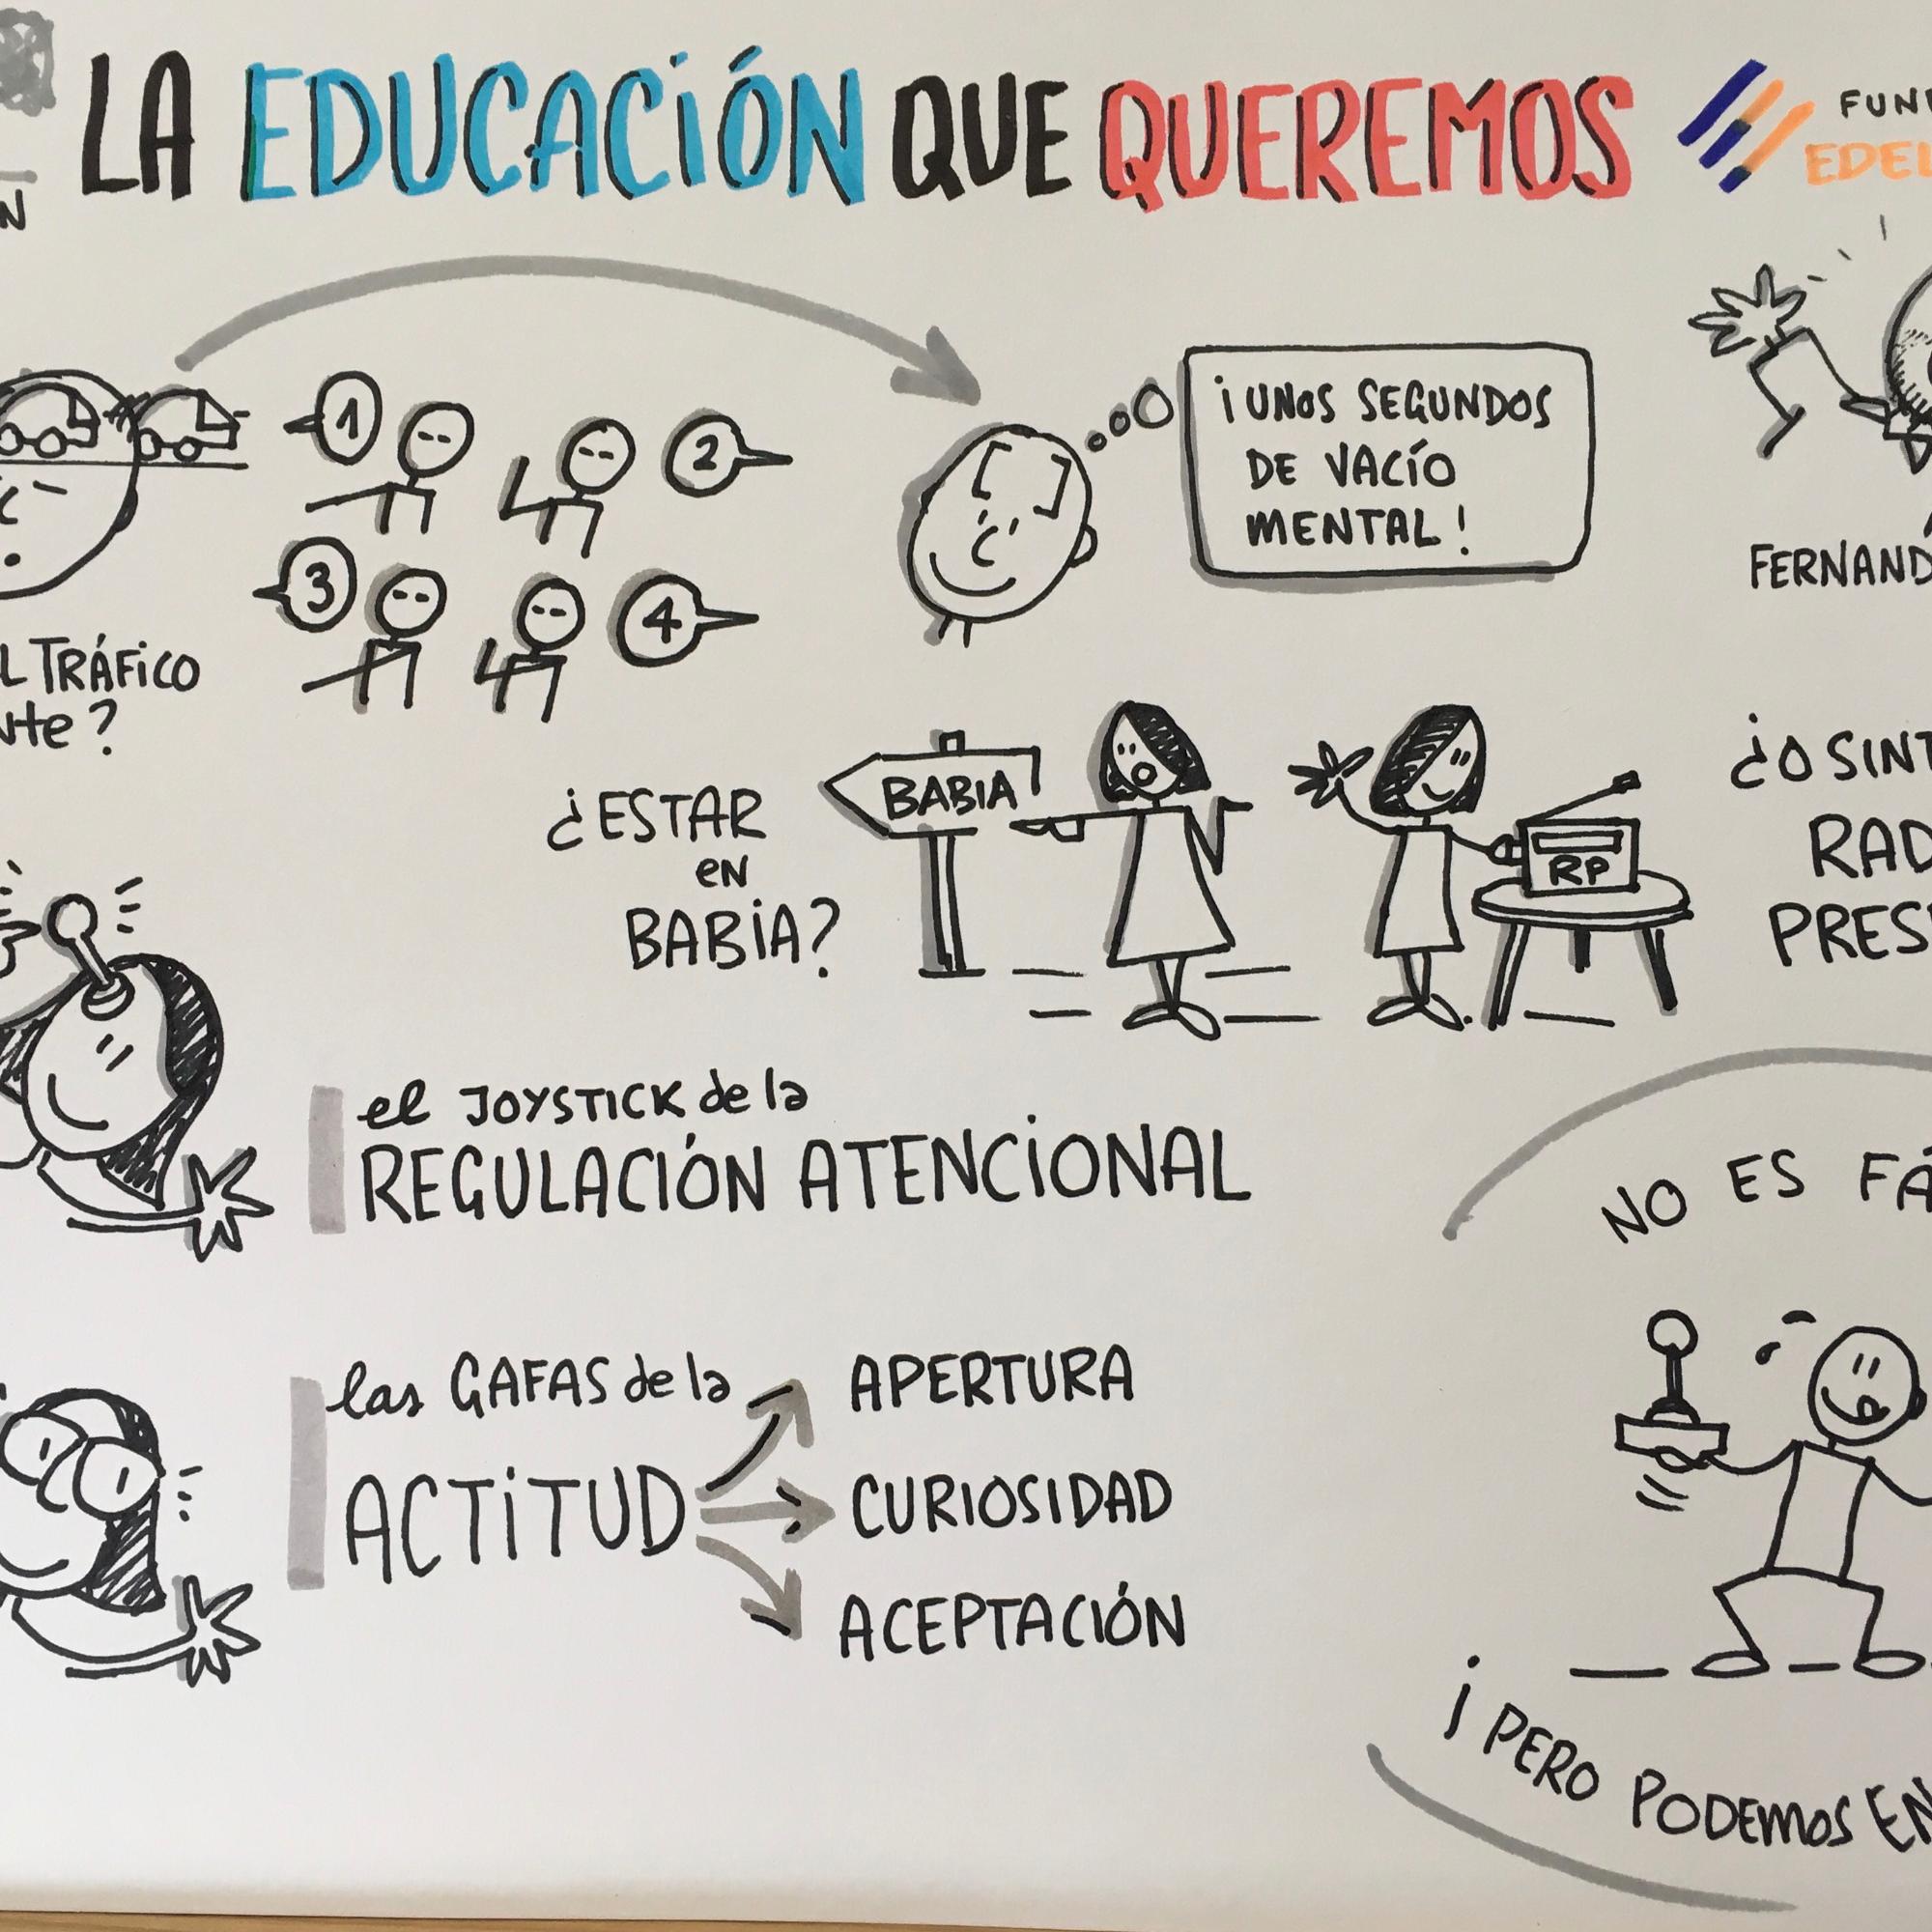 LA EDUCACIÓN QUE QUEREMOS
FUN
EDEL
N
1
2
3
4
¡UNOS SEGUNDOS
DE VACÍO
MENTAL!
FERNAND
L TRÁFICO
nte?
¿ESTAR
EN
BABIA?
BABIA
RP
¿O SINT
RAD
PRES
el JOYSTICK de la
REGULACIÓN ATENCIONAL
NO ES FÁ
las GAFAS de la
ACTITUD
APERTURA
CURIOSIDAD
ACEPTACIÓN
¡PERO PODEMOS EN